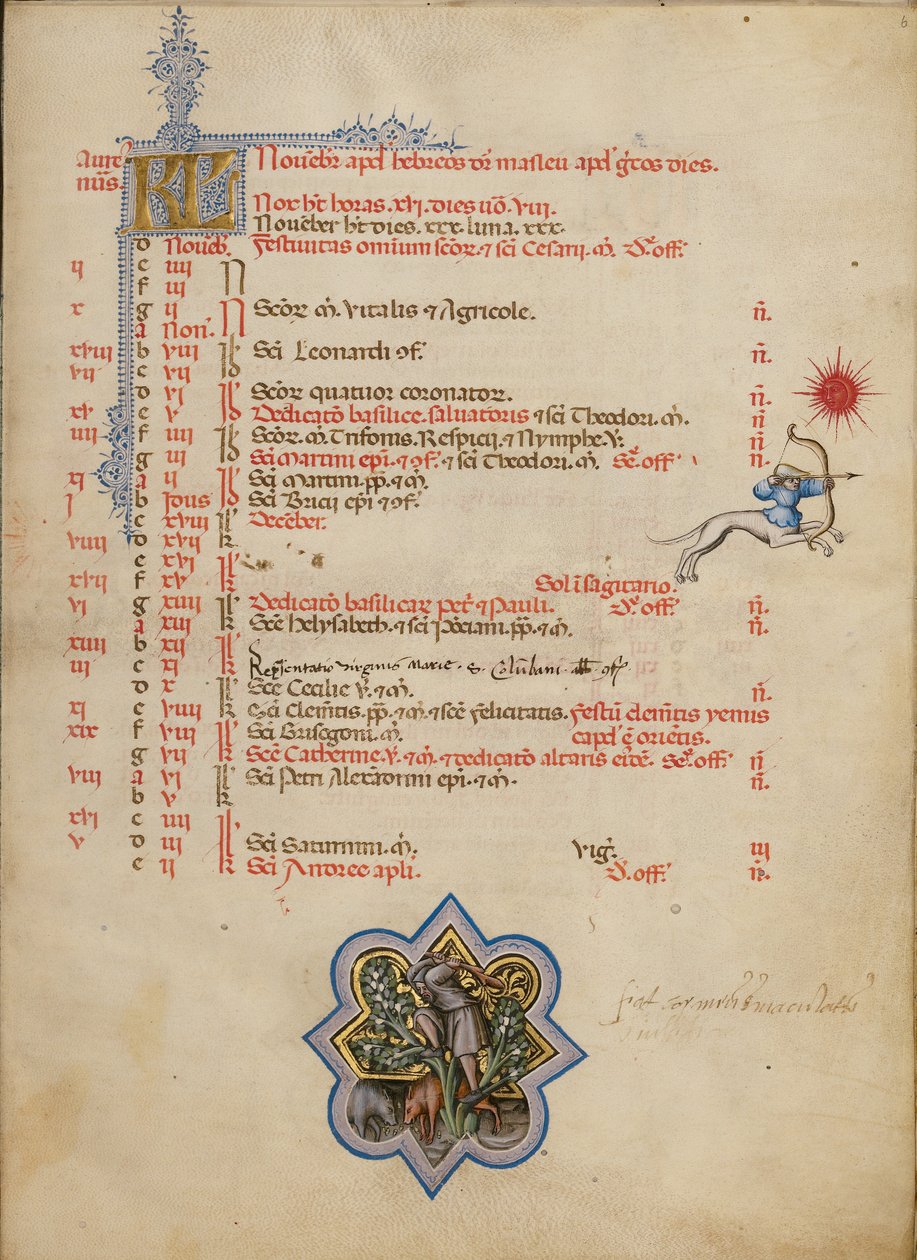 6
Aure
nus.
KL Nouēbr apd' hebreos dr̄ masleu apd' gͥtos dies.
Nox ht̄ horas .xvi. dies uō .viii.
Nouēber ht̄ dies .xxx. luna .xxx.
d Nouēb. Festiuitas omium scōꝝ. ⁊ sc̄i Cesarii. m̄. Dꝛ̄. off.
ii e iiii N
f iii
x g ii N Scōꝝ m̄. Vitalis ⁊ Agricole. n̄.
a Non.
xviii b viii Id Sc̄i Leonardi ꝯf. n̄.
vii c vii
d vi Id Scōꝝ quatuor coronatoꝝ. n̄.
xv e v Dedicatō basilice saluatoris ⁊ sc̄i Theodori. m̄. n̄
iiii f iiii Id Scōꝝ. m̄. Trifonis. Respicij. ⁊ Nymphe. v. n̄
g iii Sc̄i Martini epi. ⁊ ꝯf. ⁊ sc̄i Theodori. m̄. Se. off. n̄.
xi a ii Id Sc̄i Martini. pp. ⁊ m̄.
i b Idus Sc̄i Bricij epi ⁊ ꝯf.
c xviii k Decēber.
viiii d xvii
e xvi k
xvii f xv Sol ī sagitario.
vi g xiiii k Dedicatō basilicaꝝ petͥ ⁊ Pauli. Dꝛ̄. off. n̄.
a xiii Sc̄e helysabeth. ⁊ sc̄i Pōciani. pp. ⁊ m̄. n̄.
xiiii b xii k
iii c xi Repn̄tatio virginis Marie. S. Colūbani abb. ꝯf.
d x k Sc̄e Cecilie v̄. ⁊ m̄. n̄.
xi e viiii Sc̄i Clemētis. pp. ⁊ m̄. ⁊ sc̄e felicitatis. Festū clemētis yemis
xix f viii k Sc̄i Grisogoni. m̄. capd' ē orietis.
g vii Sc̄e Catherine. v̄. ⁊ m̄. ⁊ dedicatō altaris Se. off. n̄
viii a vi k Sc̄i Petri Alexādrini epi. ⁊ m̄. n̄.
b v
xvi c iiii k
v d iii Sc̄i Saturnini. m̄. vig̅. iii
e ii k Sc̄i Andree apli. Dꝛ̄. off. n̄.
fiat cor